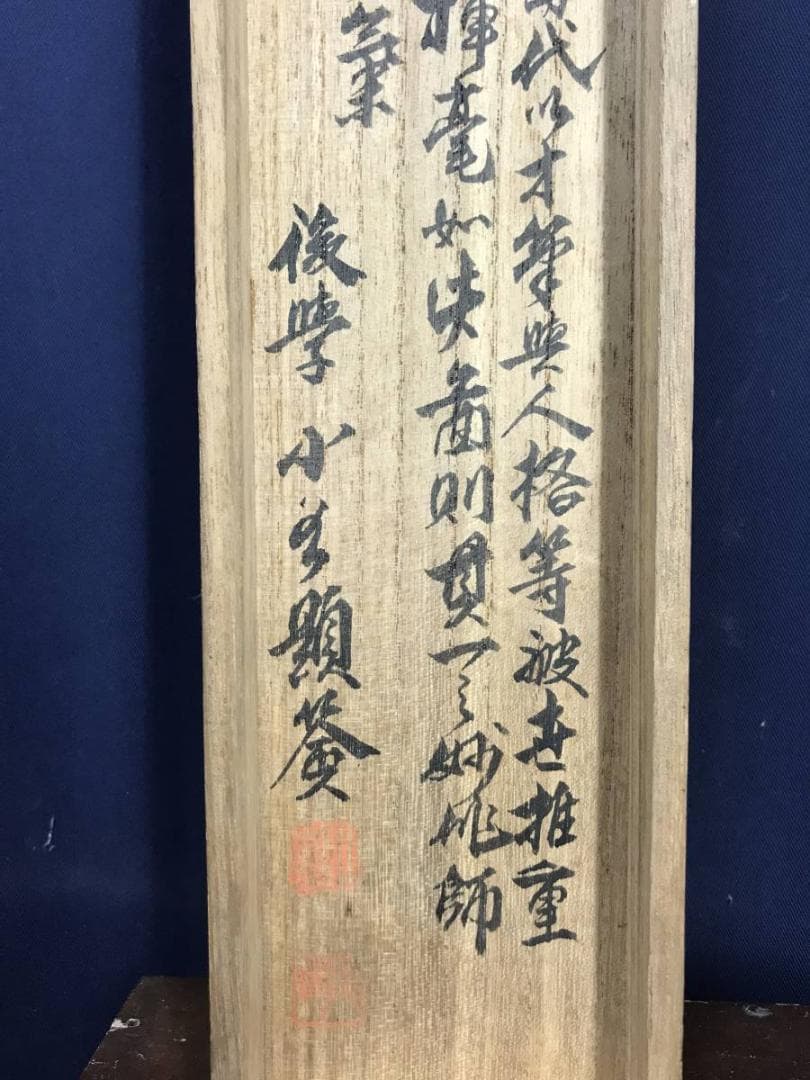 代以才筆與人格等被世推重
揮毫如此畫則真一之妙
師
後學小
題簽